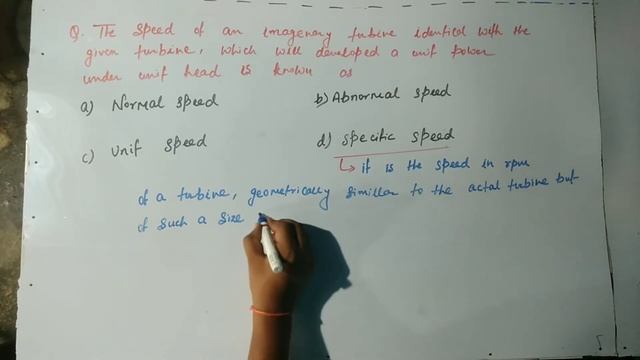 Q. The speed of an imagenary turbine identical with the
given turbine, which will developed a unit power
under unit head is known as
a) Normal speed
b) Abnormal speed
c) Unit speed
d) Specific speed
↳ it is the speed in rpm
of a turbine, geometrically similar to the actal turbine but
of such a size